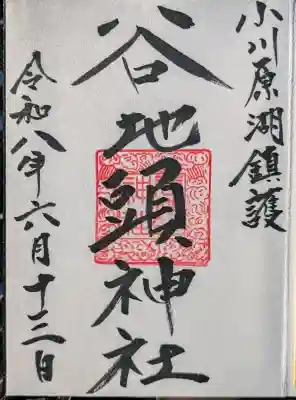 小川原湖鎮護
谷地頭神社
令和八年六月十三日